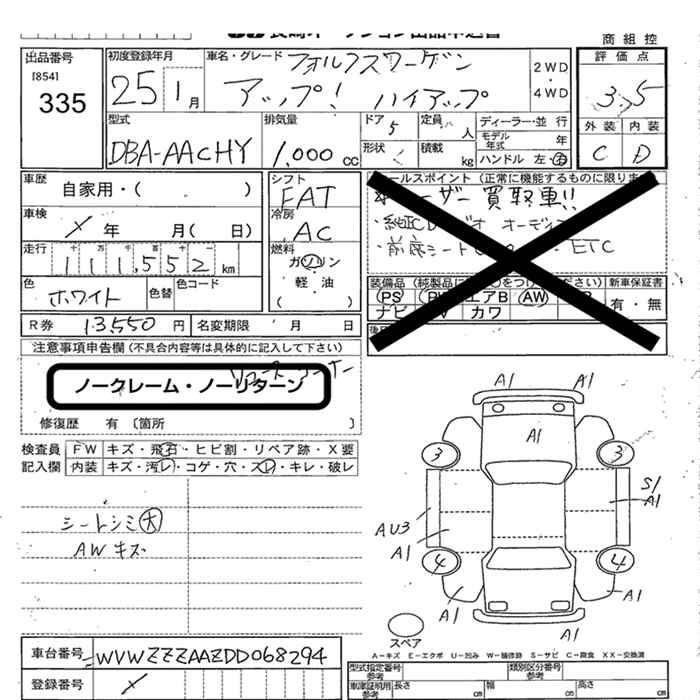 商組控
出品番号
[854]
335
初度登録年月
25 1月
車名・グレード
フォルクスワーゲン
アップ! ハイアップ
2WD
・
4WD
評価点
3.5
外装 内装
C D
型式
DBA-AACHY
排気量
1,000 cc
ドア 5
形状
定員 人
積載 kg
ディーラー・並行
モデル年式 年
ハンドル 左・右
車歴
自家用・( )
車検
年 月( 日)
走行
111,552 km
色
ホワイト
色替
色コード
シフト
FAT
冷房
AC
燃料
ガソリン
軽・油
( )
セールスポイント (正常に機能するものに限ります)
ユーザー買取車!!
・前席シート
ETC
新車保証書
有・無
PS エアB AW
ナビ カワ
R券 13,550円
名変期限 月 日
注意事項申告欄 (不具合内容等は具体的に記入して下さい)
ノークレーム・ノーリターン
修復歴 有 〔箇所 〕
検査員記入欄
FW キズ・飛石・ヒビ割・リペア跡・X要
内装 キズ・汚レ・コゲ・穴・スレ・キレ・破レ
シートシミ大
AWキズ
A1 A1
A1
3 3
S1
A1
AU3
A1
4 4
A1 A1
A1
スペア
A-キズ E-エクボ U-凹み W-補修跡 S-サビ C-腐食 XX-交換済
車台番号 WVWZZZAAZDD068294
登録番号
型式指定番号 参考
類別区分番号 参考
車庫証明用 参考 長さ cm 幅 cm 高さ cm